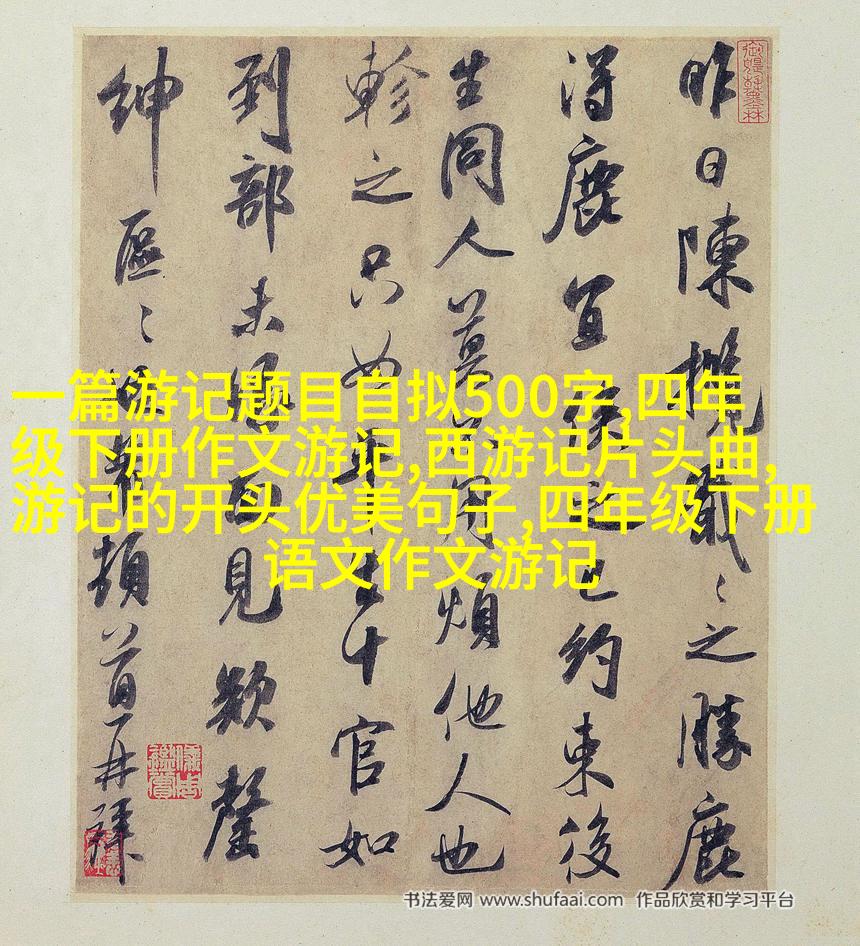 昨日陳攬戢〻之勝鹿
得鹿宜也約束後
生同人用煩他人也
軫之只如平生十官如
到部未緣面見欵罄
紳區〻頓首再拜
一篇游记题目自拟500字,四年
级下册作文游记,西游记片头曲,
游记的开头优美句子,四年级下册
语文作文游记
书法爱网 www.shufaai.com 作品欣赏和学习平台